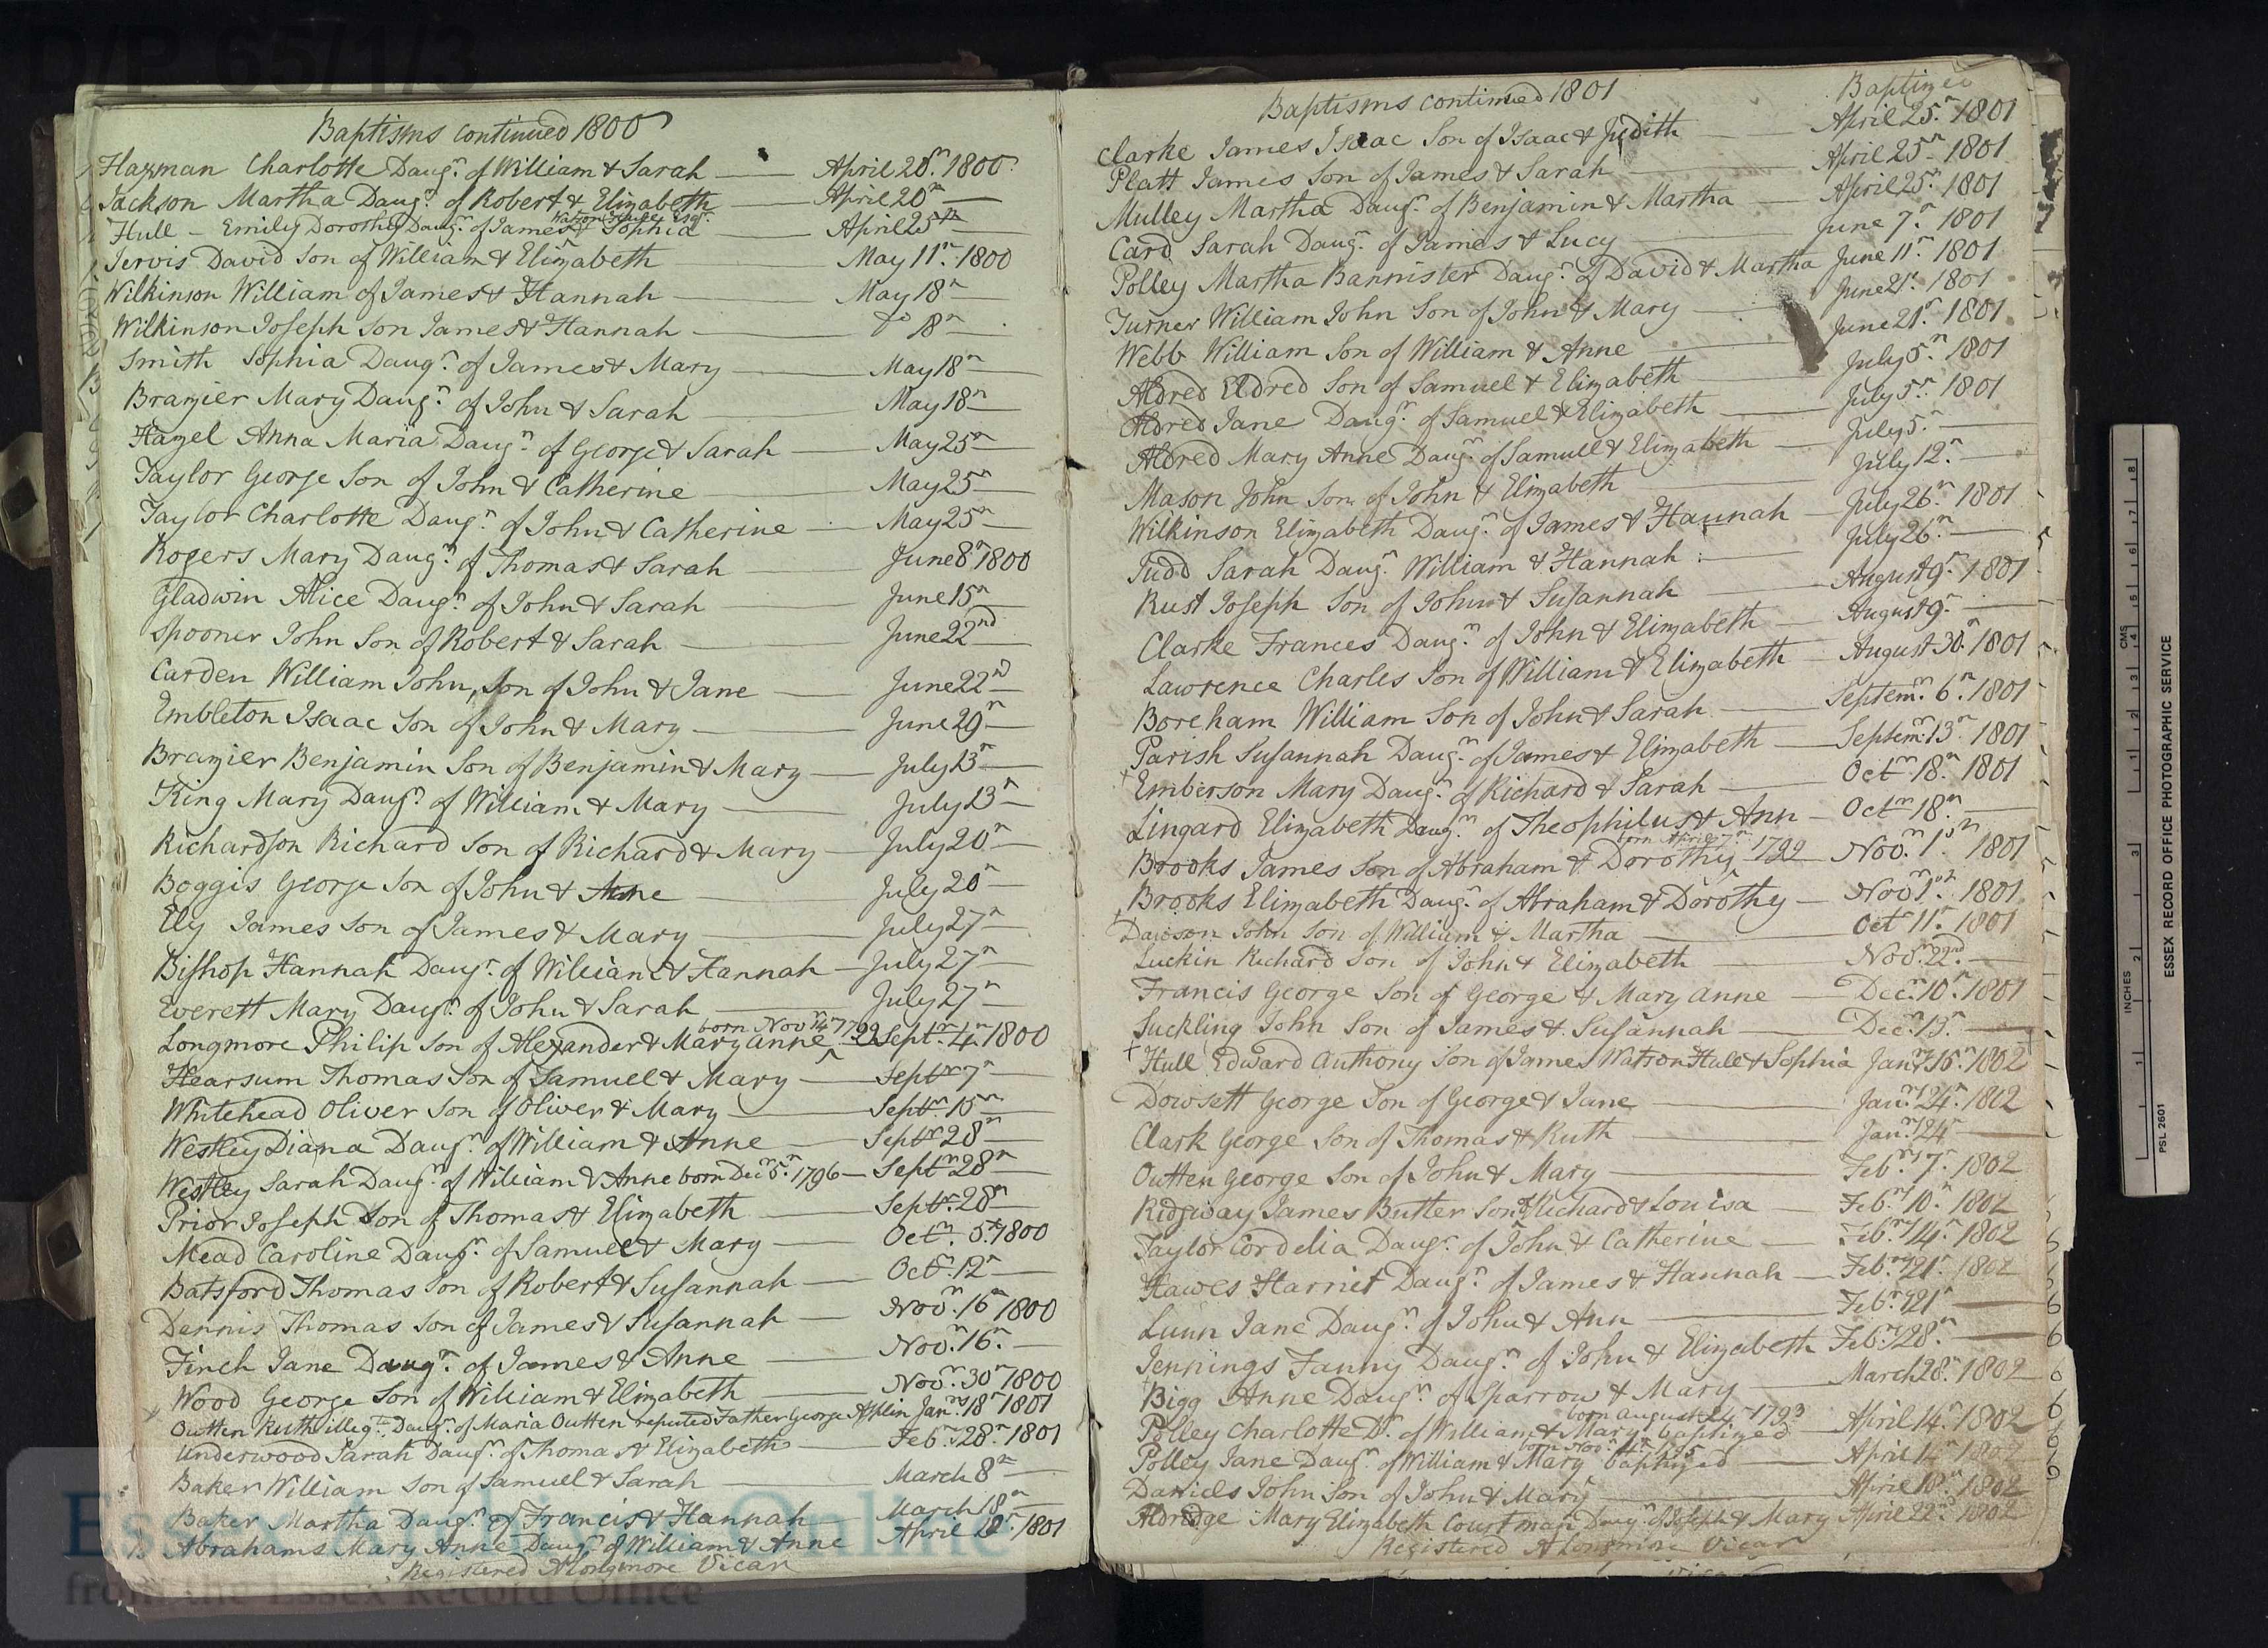 D/P 65/1/3
Baptisms continued 1800
Hayman Charlotte Daugr. of William & Sarah April 20th. 1800
Jackson Martha Daugr. of Robert & Elizabeth April 20th
Watson Hull Esqr.
Hull - Emily Dorothy Daugr. of James & Sophia April 25th
Jervis David Son of William & Elizabeth May 11th. 1800
Wilkinson William of James & Hannah May 18th
Wilkinson Joseph Son James & Hannah Do 18th
Smith Sophia Daugr. of James & Mary May 18th
Brazier Mary Daugr. of John & Sarah May 18th
Hazel Anna Maria Daugr. of George & Sarah May 25th
Taylor George Son of John & Catherine May 25th
Taylor Charlotte Daugr. of John & Catherine May 25th
Rogers Mary Daugr. of Thomas & Sarah June 8th 1800
Gladwin Alice Daugr. of John & Sarah June 15th
Spooner John Son of Robert & Sarah June 22nd
Carden William John, Son of John & Jane June 22nd
Embleton Isaac Son of John & Mary June 29th
Brazier Benjamin Son of Benjamin & Mary July 13th
King Mary Daugr. of William & Mary July 13th
Richardson Richard Son of Richard & Mary July 20th
Boggis George Son of John & Anne July 20th
Ely James Son of James & Mary July 27th
Bishop Hannah Daugr. of William & Hannah July 27th
Everett Mary Daugr. of John & Sarah July 27th
born Novr 14th 1799
Longmore Philip Son of Alexander & Mary Anne Septr. 4th 1800
Hearsum Thomas Son of Samuel & Mary Septr 7th
Whitehead Oliver Son of Oliver & Mary Septr. 15th
Westley Diana Daugr. of William & Anne Septr 28th
Westley Sarah Daugr. of William & Anne born Decr 5th. 1796 Septr 28th
Prior Joseph Son of Thomas & Elizabeth Septr. 28th
Mead Caroline Daugr. of Samuel & Mary Octr. 5th 1800
Batsford Thomas Son of Robert & Susannah Octr. 12th
Dennis Thomas Son of James & Susannah Novr. 16th 1800
Finch Jane Daugr. of James & Anne Novr. 16th.
Wood George Son of William & Elizabeth Novr. 30th 1800
Outten Ruth illegte. Daugr. of Maria Outten reputed Father George Applin Jany 18th 1801
Underwood Sarah Daugr. of Thomas & Elizabeth Feby. 28th. 1801
Baker William Son of Samuel & Sarah March 8th
Baker Martha Daugr. of Francis & Hannah March 18th
Abrahams Mary Anne Daugr. of William & Anne April 1801
Registered A Longmore Vicar
Baptisms continued 1801 Baptized
Clarke James Isaac Son of Isaac & Judith April 25th. 1801
Platt James Son of James & Sarah April 25th 1801
Mulley Martha Daugr. of Benjamin & Martha April 25th 1801
Card Sarah Daugr. of James & Lucy June 7th. 1801
Polley Martha Bannister Daugr. of David & Martha June 11th. 1801
Turner William John Son of John & Mary June 21st. 1801
Webb William Son of William & Anne June 21st. 1801
Aldred Eldred Son of Samuel & Elizabeth July 5th. 1801
Aldred Jane Daugr. of Samuel & Elizabeth July 5th. 1801
Aldred Mary Anne Daugr. of Samuel & Elizabeth July 5th.
Mason John Son of John & Elizabeth July 12th.
Wilkinson Elizabeth Daugr. of James & Hannah July 26th. 1801
Tudd Sarah Daugr. William & Hannah July 26th.
Rust Joseph Son of John & Susannah August 9th. 1801
Clarke Frances Daugr. of John & Elizabeth August 9th.
Lawrence Charles Son of William & Elizabeth August 30th. 1801
Boreham William Son of John & Sarah Septemr. 6th. 1801
Parish Susannah Daugr. of James & Elizabeth Septemr. 13th. 1801
Emberson Mary Daugr. of Richard & Sarah Octr. 18th. 1801
Lingard Elizabeth Daugr. of Theophilus & Ann Octr. 18th.
born April 7th
Brooks James Son of Abraham & Dorothy 1799 Novr. 1st 1801
Brooks Elizabeth Daugr. of Abraham & Dorothy Novr 1st. 1801
Dawson John Son of William & Martha Octr 11th. 1801
Luckin Richard Son of John & Elizabeth Novr. 22nd.
Francis George Son of George & Mary Anne Decr. 10th. 1801
Suckling John Son of James & Susannah Decr. 13th.
Hull Edward Anthony Son of James Watson Hull & Sophia Jany 15th. 1802
Dowsett George Son of George & Jane Jany. 24th. 1802
Clark George Son of Thomas & Ruth Jany. 24th
Outten George Son of John & Mary Feby. 7th. 1802
Ridgway James Butler Son of Richard & Louisa Feby. 10th. 1802
Taylor Cordelia Daugr. of John & Catherine Feby. 14th. 1802
Hawes Harriet Daugr. of James & Hannah Feby. 21st. 1802
Lunn Jane Daugr. of John & Ann Feby. 21st
Jennings Fanny Daugr. of John & Elizabeth Feby. 28th.
Bigg Anne Daugr. of Sparrow & Mary March 28th. 1802
born August 24th 1793
Polley Charlotte Dr. of William & Mary baptized April 14th. 1802
born Novr. 4th. 1795
Polley Jane Daugr. of William & Mary baptized April 14th 1802
Daniels John Son of John & Mary April 18th. 1802
Aldridge Mary Elizabeth Courtman Daugr. of Joseph & Mary April 22nd. 1802
Registered A Longmore Vicar
CMS
1 2 3 4 5 6 7 8
INCHES
1 2 3
ESSEX RECORD OFFICE PHOTOGRAPHIC SERVICE
PSL 2601
Essex Archives Online
from the Essex Record Office